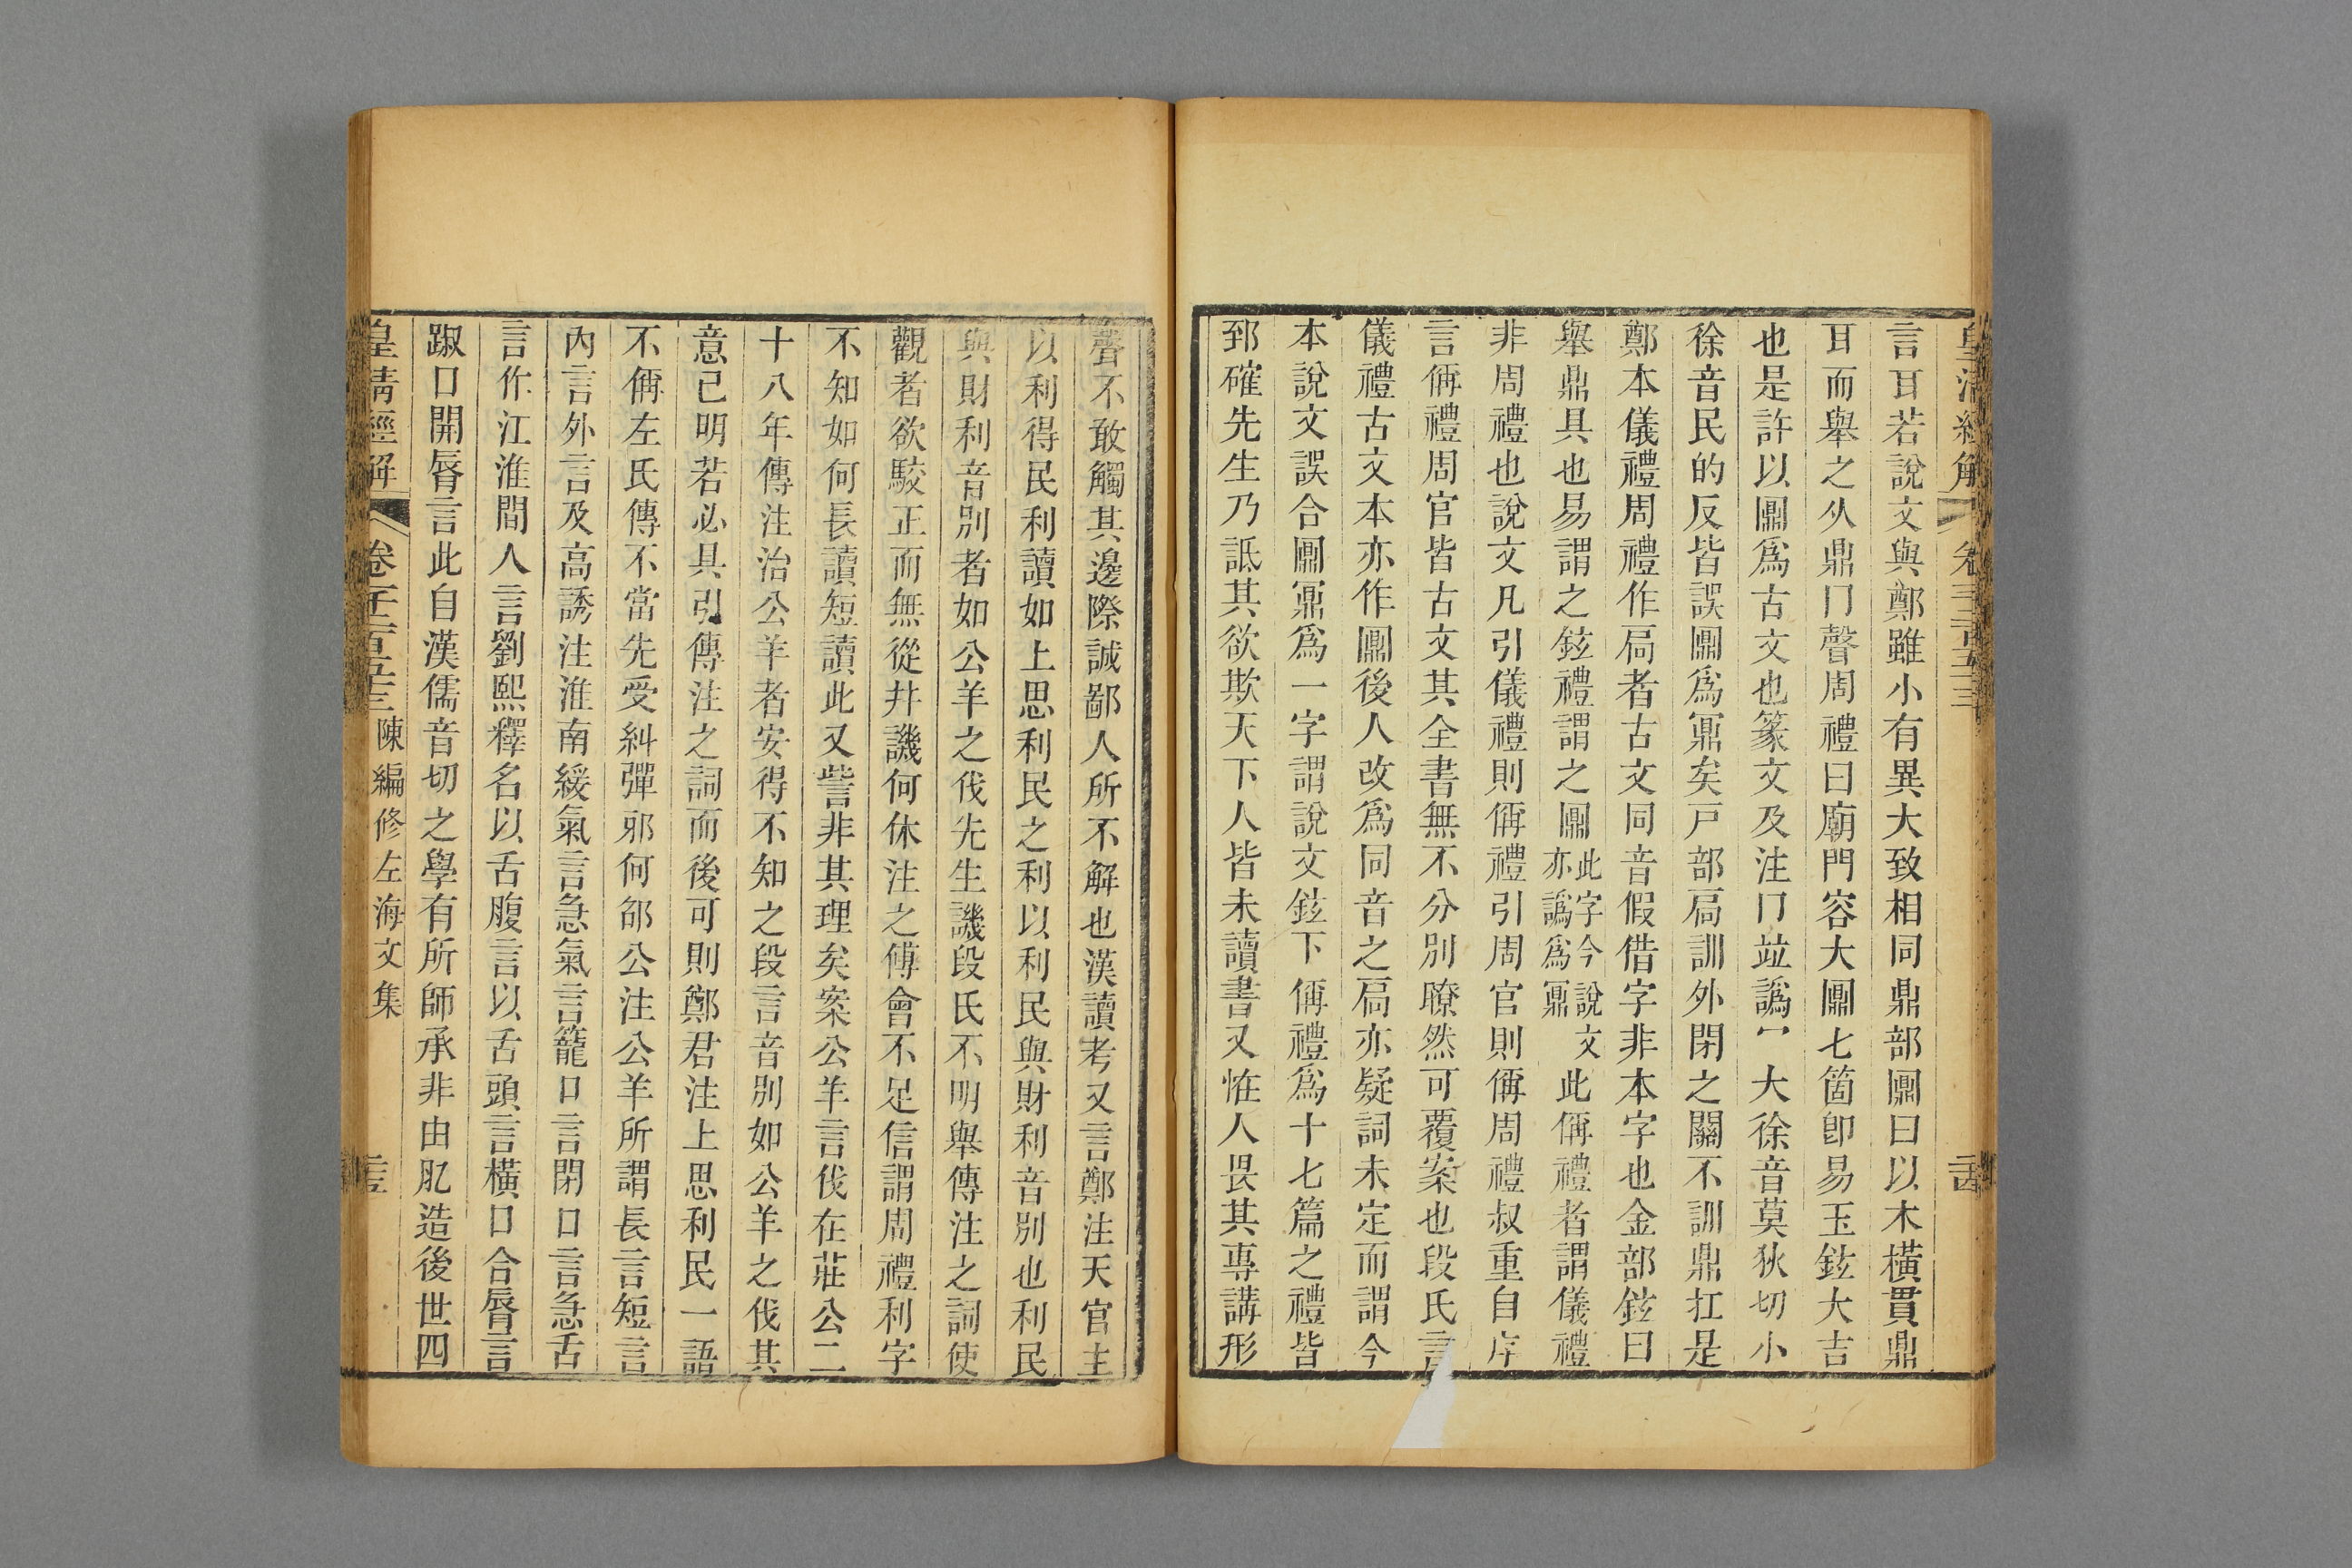 皇清經解 卷千二百五十三 二十四
言耳若說文與鄭雖小有異大致相同鼎部鼏曰以木橫貫鼎
耳而舉之从鼎冂聲周禮曰廟門容大鼏七箇卽易玉鉉大吉
也是許以鼏爲古文也篆文及注冂竝譌冖大徐音莫狄切小
徐音民的反皆誤鼏爲鼏矣戸部扃訓外閉之關不訓鼎扛是
鄭本儀禮周禮作扃者古文同音假借字非本字也金部鉉曰
舉鼎具也易謂之鉉禮謂之鼏此字今說文亦譌爲鼏此偁禮者謂儀禮
非周禮也說文凡引儀禮則偁禮引周官則偁周禮叔重自序
言偁禮周官皆古文其全書無不分別瞭然可覆案也段氏言
儀禮古文本亦作鼏後人改爲同音之扃亦疑詞未定而謂今
本說文誤合鼏鼏爲一字謂說文鉉下偁禮爲十七篇之禮皆
郅確先生乃詆其欲欺天下人皆未讀書又恠人畏其專講形
聲不敢觸其邊際誠鄙人所不解也漢讀考又言鄭注天官主
以利得民利讀如上思利民之利以利民與財利音別也利民
與財利音別者如公羊之伐先生譏段氏不明舉傳注之詞使
觀者欲駮正而無從幷譏何休注之傅會不足信謂周禮利字
不知如何長讀短讀此又訾言非其理矣案公羊言伐在莊公二
十八年傳注治公羊者安得不知之段言音別如公羊之伐其
意已明若必具引傳注之詞而後可則鄭君注上思利民一語
不偁左氏傳不當先受糾彈邪何邵公注公羊所謂長言短言
內言外言及高誘注淮南緩氣言急氣言籠口言閉口言急舌
言作江淮間人言劉熙釋名以舌腹言以舌頭言橫口合脣言
踧口開脣言此自漢儒音切之學有所師承非由肊造後世四
皇清經解 卷千二百五十三 陳編修左海文集 二十五